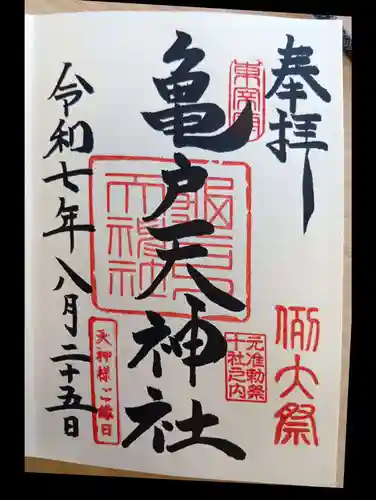 奉拝
例大祭
東宰府
亀戸天神社
亀戸天神社
元准勅祭
十社之内
令和七年八月二十五日
天神様ご縁日